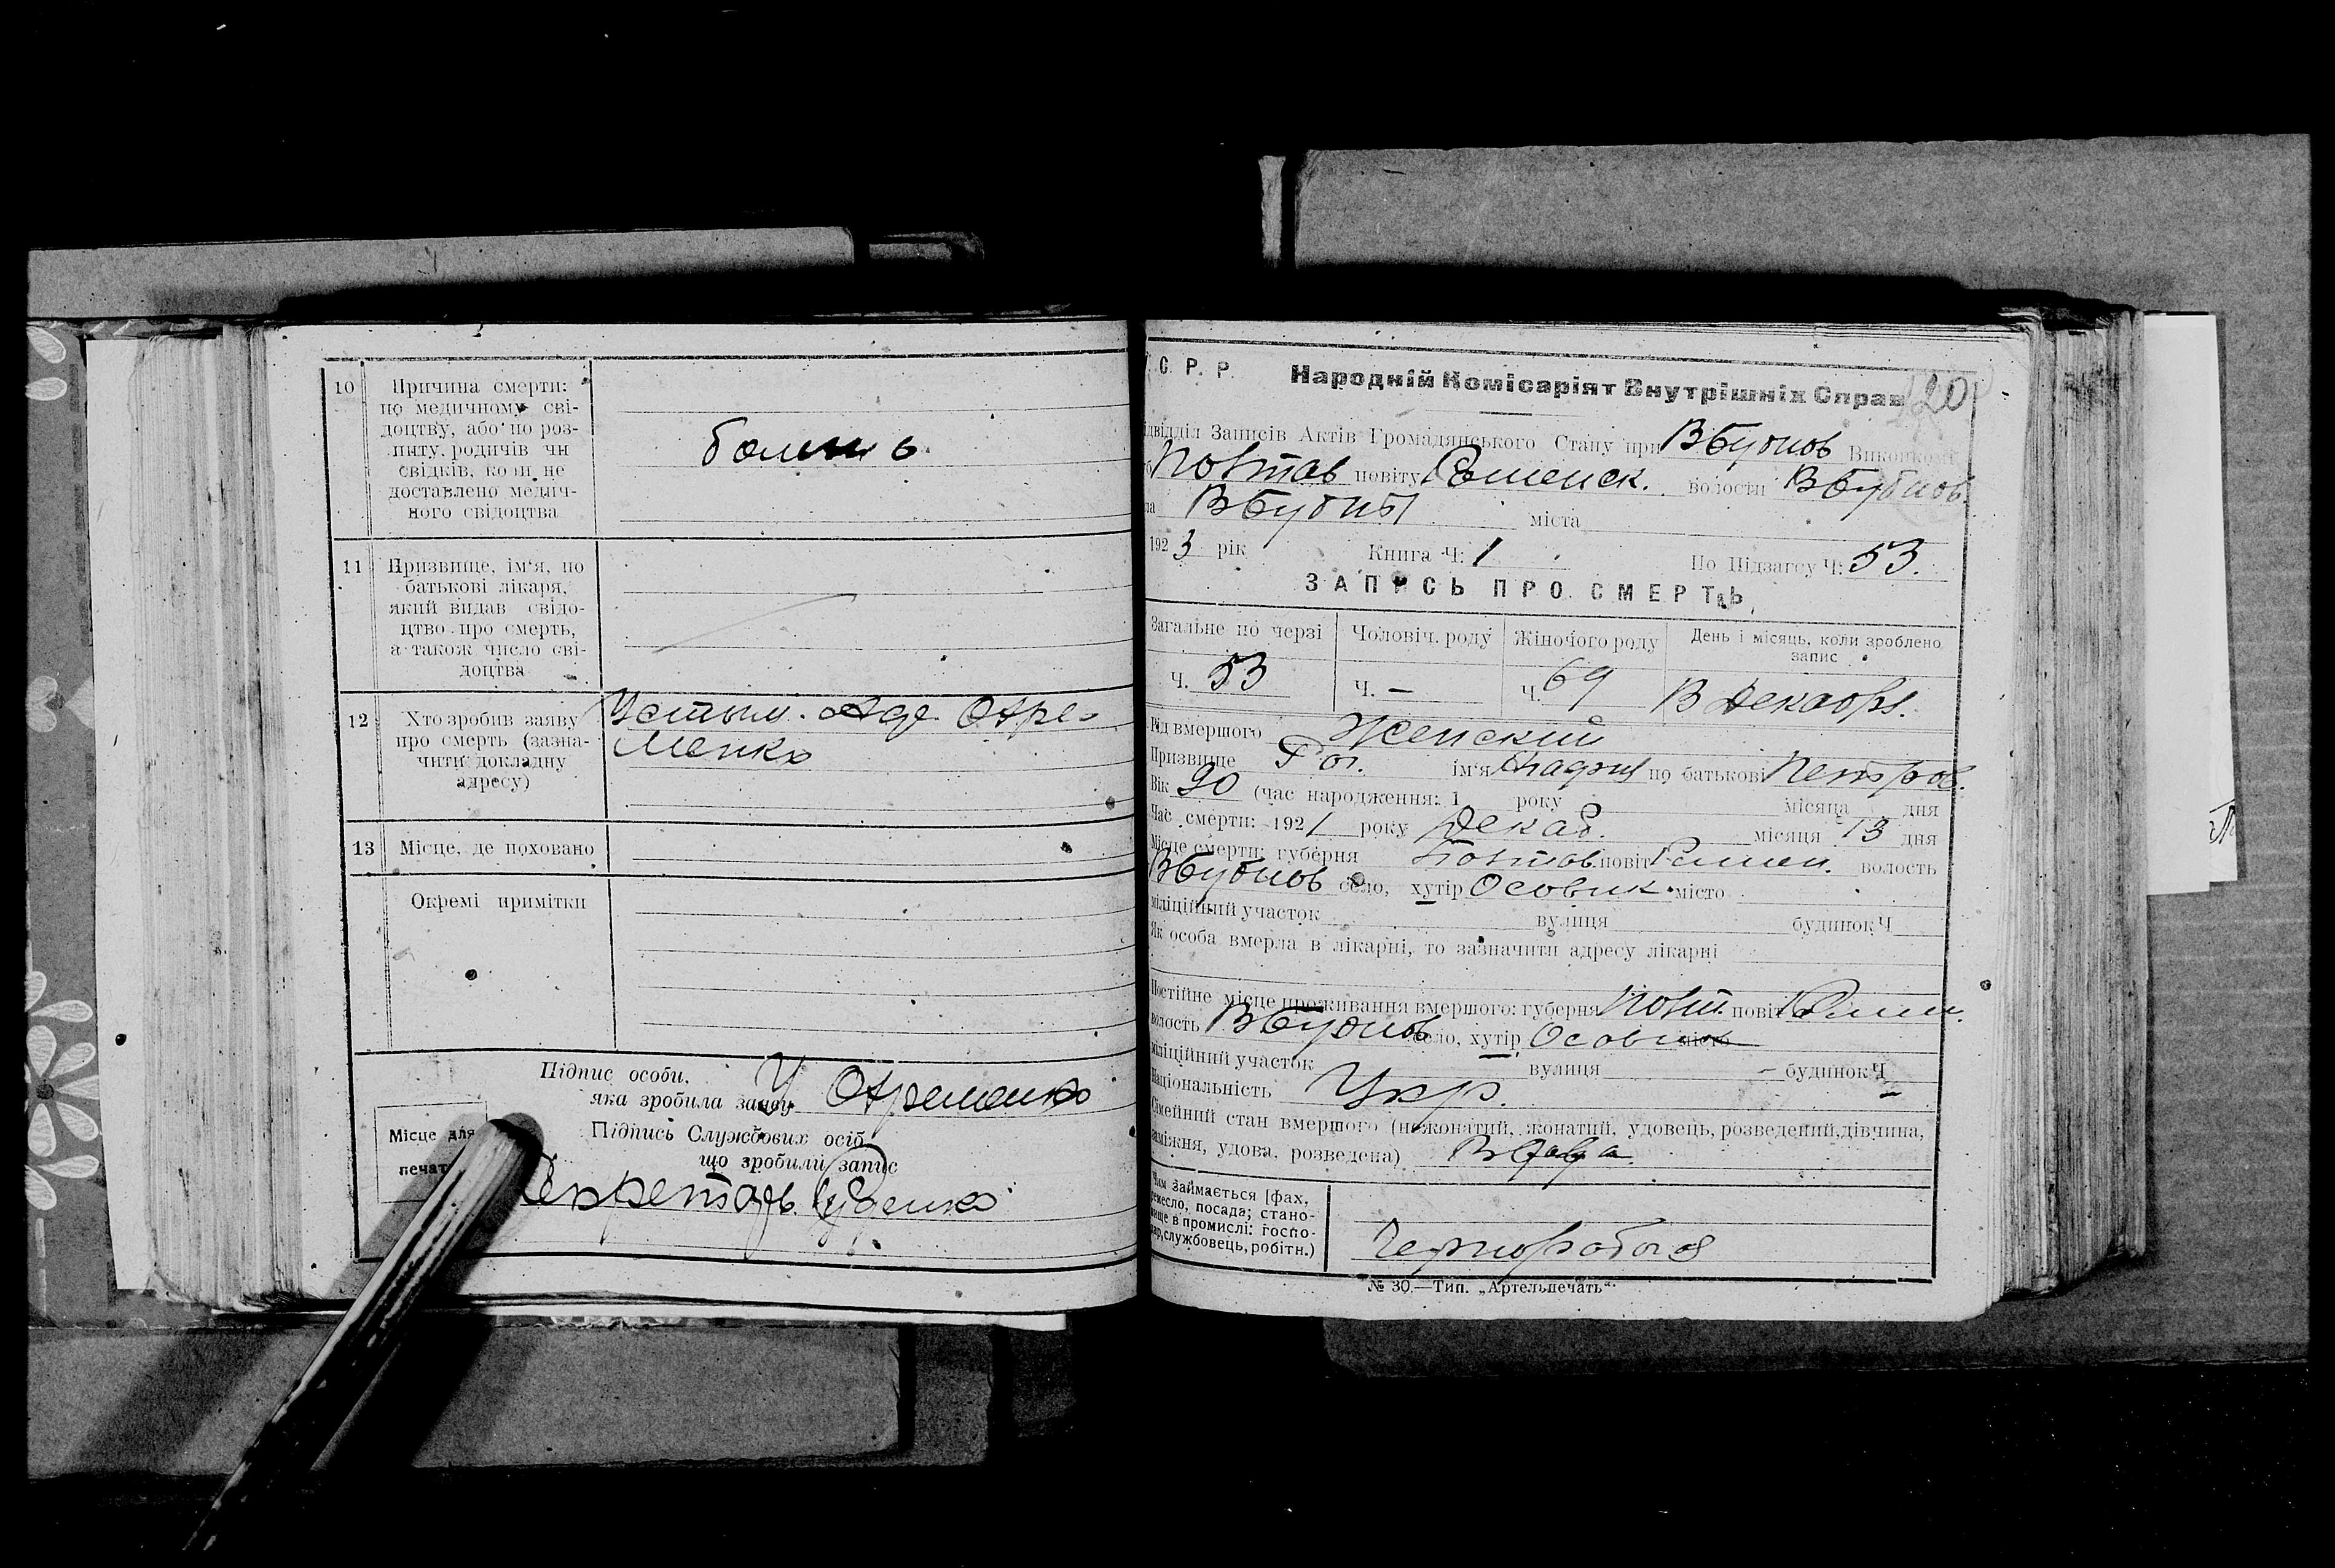 10 Причина смерти:
по медичному сві-
доцтву, або по роз-
питу, родичів чи
свідків, коли не
доставлено медич-
ного свідоцтва
болень
11 Призвище, ім'я, по
батькові лікаря,
який видав свідо-
цтво про смерть,
а також число сві-
доцтва
12 Хто зробив заяву
про смерть (зазна-
чити докладну
адресу)
Устым. Охре-
менко
13 Місце, де поховано
Окремі примітки
Підпис особи,
яка зробила заяву У Охременко
Підпись Службових осіб
що зробили запис
Місце для
печат
Секретарь Руденко
С. Р. Р. Народній Комісаріят Внутрішніх Справ
120
ідвідділ Записів Актів Громадянського Стану при Вбубнов Виконкомі
Повтав повіту Роменск. волости Вбубнов.
ла Вбубны міста
1923 рік Книга Ч: 1 По Підзагсу Ч: 53.
ЗАПИСЬ ПРО СМЕРТЬ
Загальне по черзі Чоловіч. роду Жіночого роду День і місяць, коли зроблено
запис
Ч. 53 Ч. — Ч. 69 Декабря.
Рід вмершого Женский
Призвище Рог. ім'я Агафия по батькові Петров.
Вік 90 (час народження: 1 року місяца дня
Час смерти: 1921 року Декаб. місяця 13 дня
Місце смерти: губерня Повтав. повіт Ромен. волость
Вбубнов село, хутір Осовик. місто
міліційний участок вулиця будинок Ч
Як особа вмерла в лікарні, то зазначити адресу лікарні
Постійне місце проживання вмершого: губерня Повт. повіт Ромен.
волость Вбубнов село, хутір Осовик місто
міліційний участок вулиця - будинок Ч -
Національність Укр.
Сімейний стан вмершого (нежонатий, жонатий, удовець, розведений, дівчина,
заміжня, удова, розведена) Вдова
Чим займається [фах,
ремесло, посада; стано-
вище в промислі: госпо-
дар, службовець, робітн.)
№ 30.—Тип. „Артельпечать“